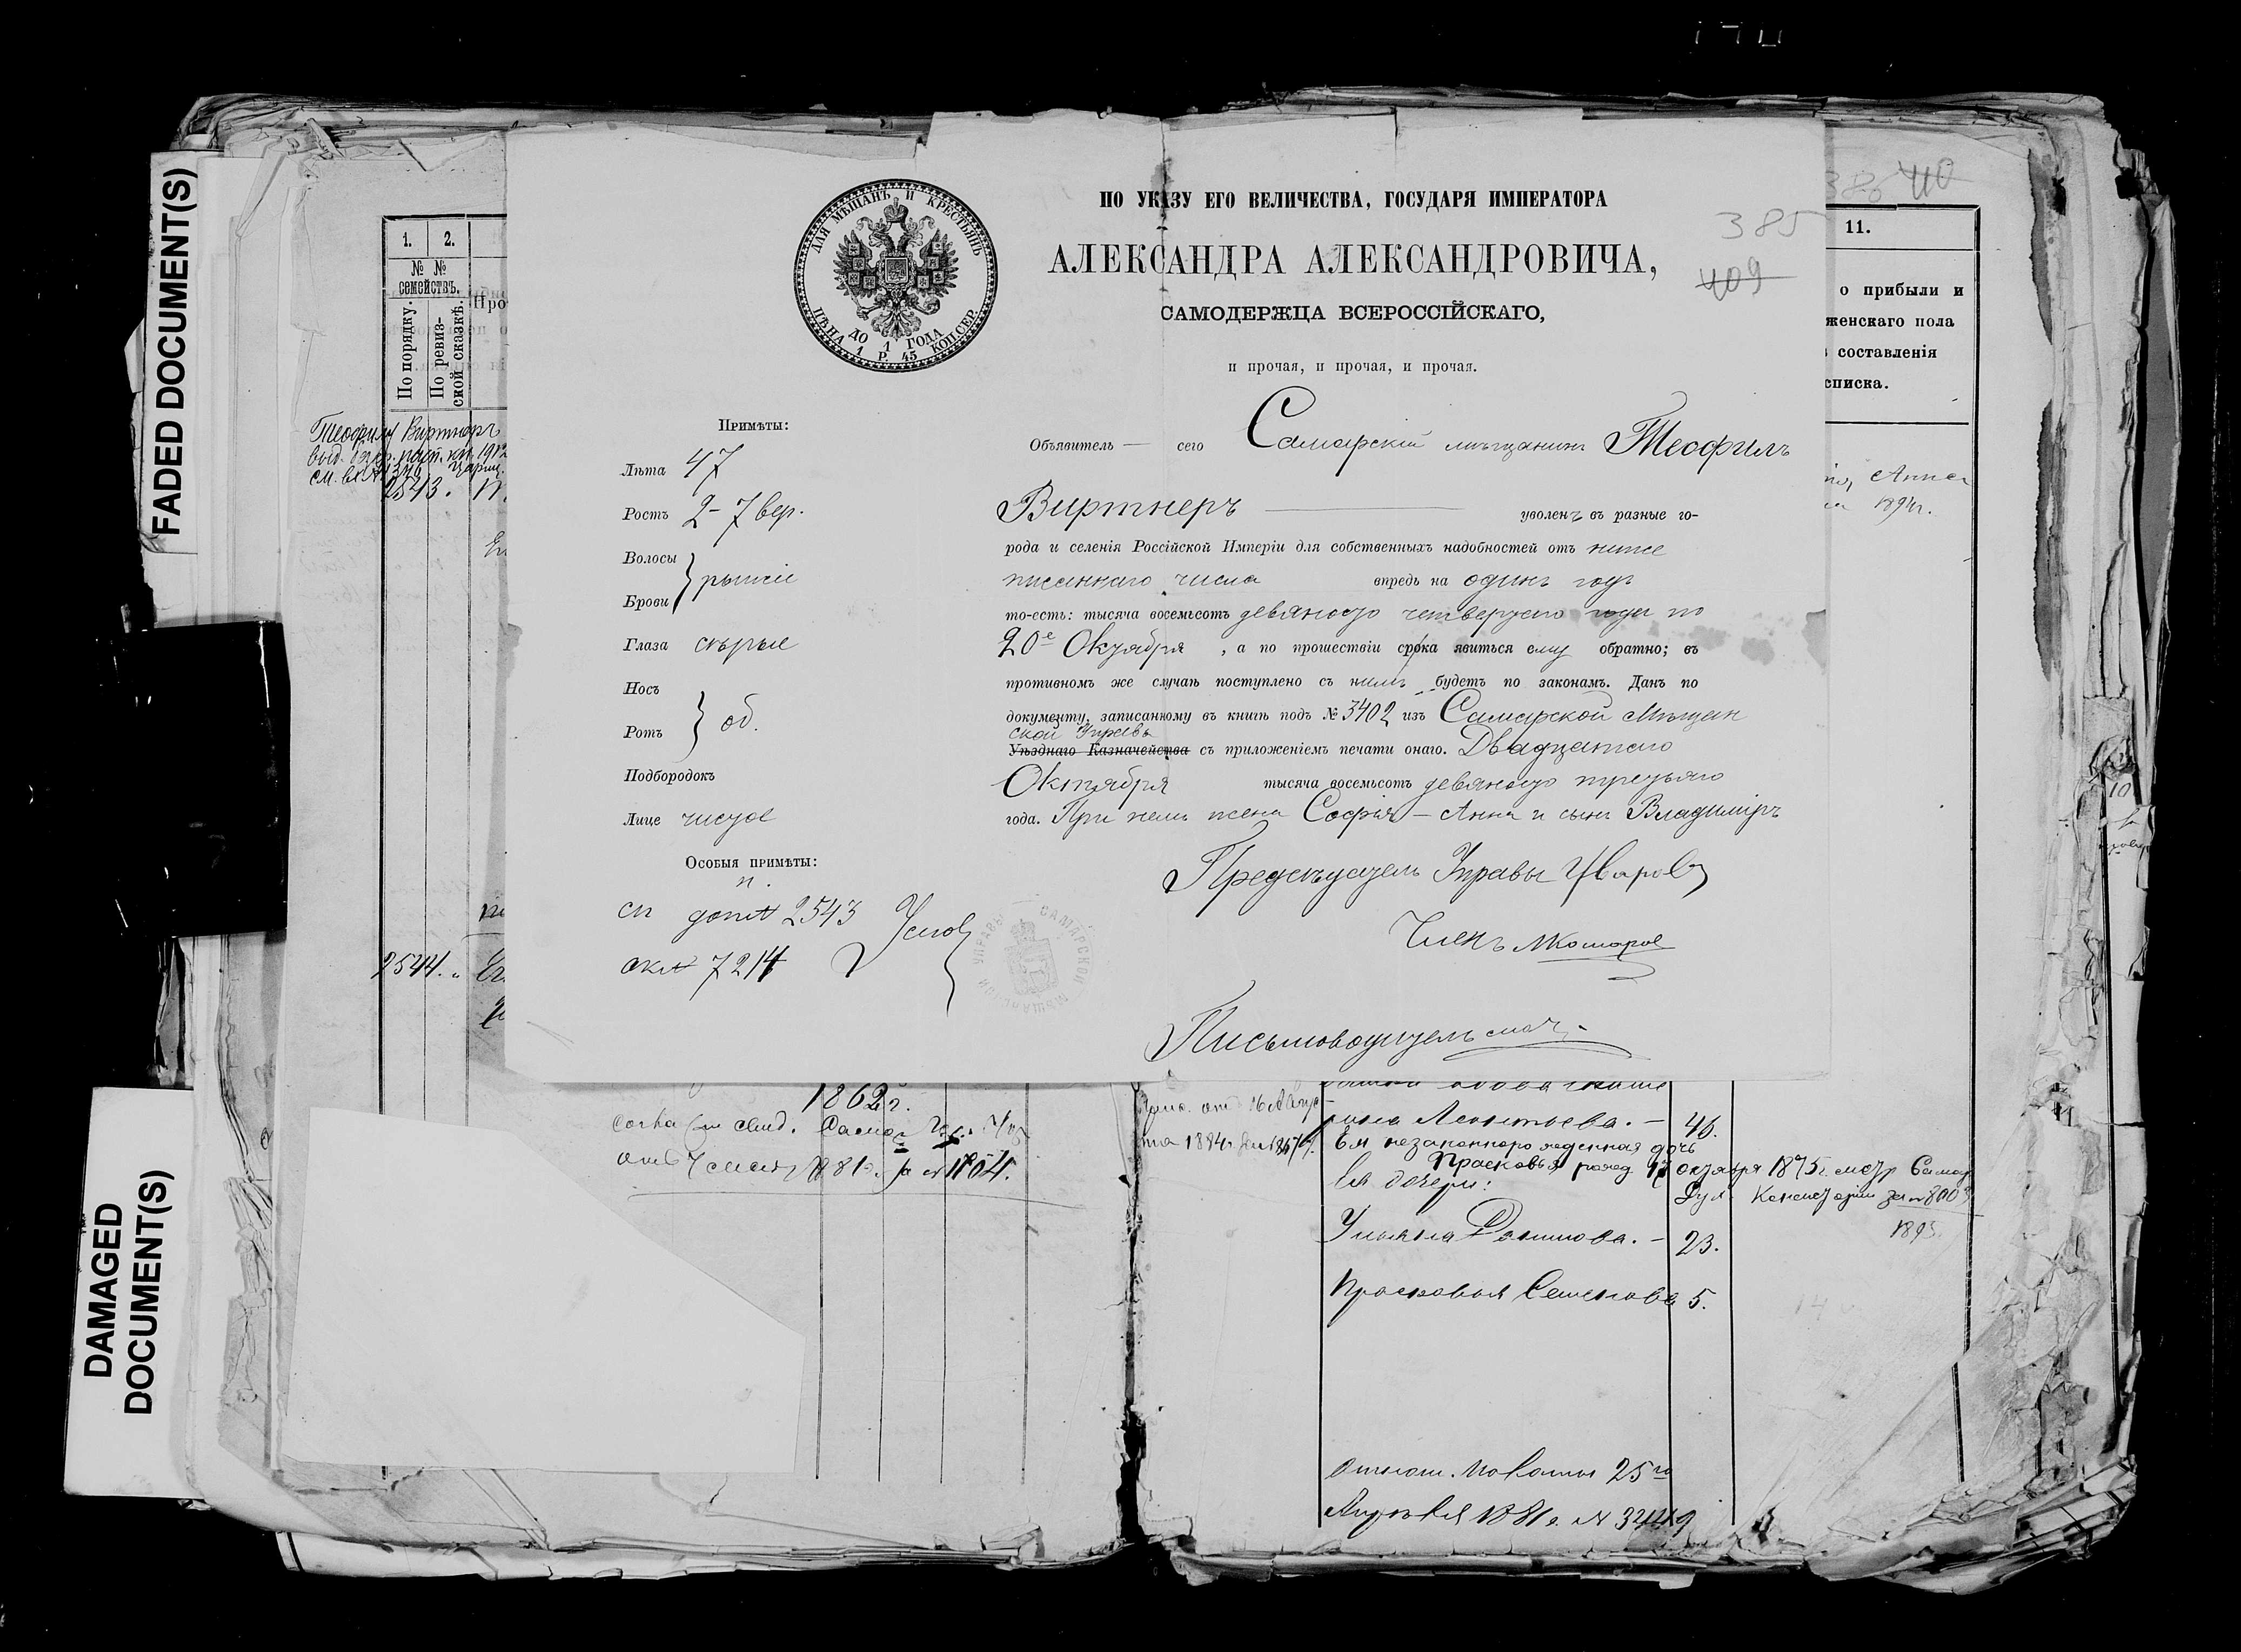 FADED DOCUMENT(S)
DAMAGED
DOCUMENT(S)
ДЛЯ МѢЩАНЪ И КРЕСТЬЯНЪ
ЦѢНА 1 Р. 45 КОП. СЕР.
ДО 1 ГОДА
ПО УКАЗУ ЕГО ВЕЛИЧЕСТВА, ГОСУДАРЯ ИМПЕРАТОРА
АЛЕКСАНДРА АЛЕКСАНДРОВИЧА,
САМОДЕРЖЦА ВСЕРОССІЙСКАГО,
и прочая, и прочая, и прочая.
385
409
Примѣты:
Лѣта 47
Ростъ 2 – 7 вер.
Волосы
Брови } рыжіе
Глаза сѣрые
Носъ
Ротъ } об.
Подбородокъ
Лице чистое
Особыя примѣты:
н.
сп доп № 2543
окл № 7214
Объявитель — сего Самарскій мѣщанинъ Теофилъ
Виртнеръ — уволенъ въ разные го-
рода и селенія Россійской Имперіи для собственныхъ надобностей отъ ниже
писаннаго числа впредь на одинъ годъ
то-есть: тысяча восемьсотъ девяносто четвертаго года по
20е Октября , а по прошествіи срока явиться ему обратно; въ
противномъ же случаѣ поступлено съ нимъ будетъ по законамъ. Данъ по
документу, записанному въ книгѣ подъ № 3402 изъ Самарской Мѣщан
ской Управы
Уѣзднаго Казначейства съ приложеніемъ печати онаго. Двадцатаго
Октября тысяча восемьсотъ девяносто третьяго
года. При немъ жена Софія – Анна и сынъ Владиміръ
Предсѣдатель Управы Уваровъ
Членъ
Письмоводитель
САМАРСКОЙ МѢЩАНСКОЙ УПРАВЫ
1. 2.
№ № семействъ.
По порядку.
По ревиз-
ской сказкѣ.
Про
Теофилъ Виртнеръ
2543.
2544.
386 410
11.
о прибыли и
женскаго пола
составленія
списка.
Анна
1894г.
1862 г.
1881 г. за № 1804.
Леонтьева. – 46.
Ея незаконнорожденная дочь
Прасковья рожд. октября 1875 г.
Ея дочери:
Консисторіи за № 8003
1895
Ульяна – 23.
Прасковья Семенова 5.
25го
Апрѣля 1881 г. № 3449